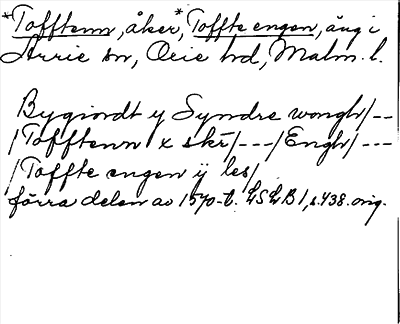 *Tofftenn, åker, *Toffte engen, äng i
Arrie sn, Oxie hd, Malm. l.
Bygiordt y Syndre wongh/--
/Tofftenn x skr/---/Engh/---
/Toffte engen ÿ les/
förra delen av 1570-t. LSLB 1, s. 438. orig.